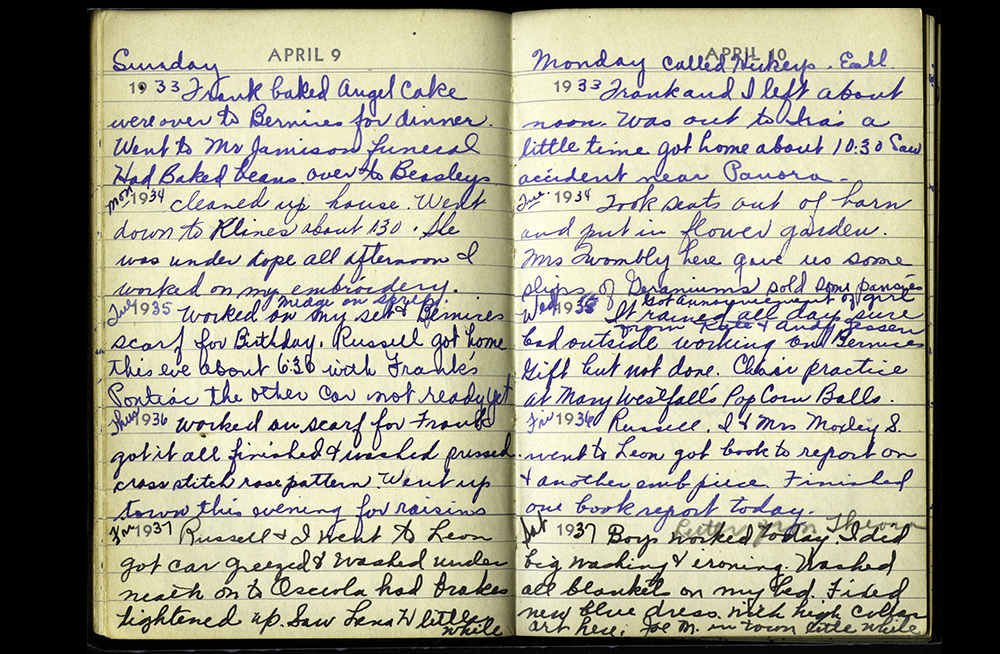 APRIL 9
Sunday
1933 Frank baked Angel Cake
were over to Bernices for dinner.
Went to Mr Jamison Funeral
Had Baked beans over to Beasleys
Mon 1934 cleaned up house. Went
down to Klines about 130. She
was under dope all afternoon I
worked on my embroidery.
made on spread.
Tue 1935 Worked on my set & Bernices
scarf for Birthday. Russell got home
this eve about 6:30 with Frank's
Pontiac the other car not ready yet
Thur 1936 worked on scarf for Frank
got it all finished & washed pressed.
cross stitch rose pattern. Went up
town this evening for raisins
Fri 1937 Russell & I went to Leon
got car greezed & washed under
neath on to Osceola had brakes
tightened up. Saw Lena W little
while
APRIL 10
Monday called Hickeys. Earl.
1933 Frank and I left about
noon. Was out to Ira's a
little time got home about 10:30 Saw
accident near Panora.
Tue. 1934 Took seats out of barn
and put in flower garden.
Mrs Twombly here gave us some
slips of Geraniums sold some pansies
Got announcement of girl
Wed 1935 It rained all day sure
from Kate & Andy Jessen
bad outside working on Bernices
Gift but not done. Choir practice
at Mary Westfall's Pop Corn Balls.
Fri 1936 Russell, I & Mrs Moxley S.
went to Leon got book to report on
& another emb piece. Finished
one book report today.
Letter from
Sat 1937 Boys worked today. I did
big washing & ironing. Washed
all blankets on my bed. Fixed
new blue dress with high collar
art here. Joe M. in town little while